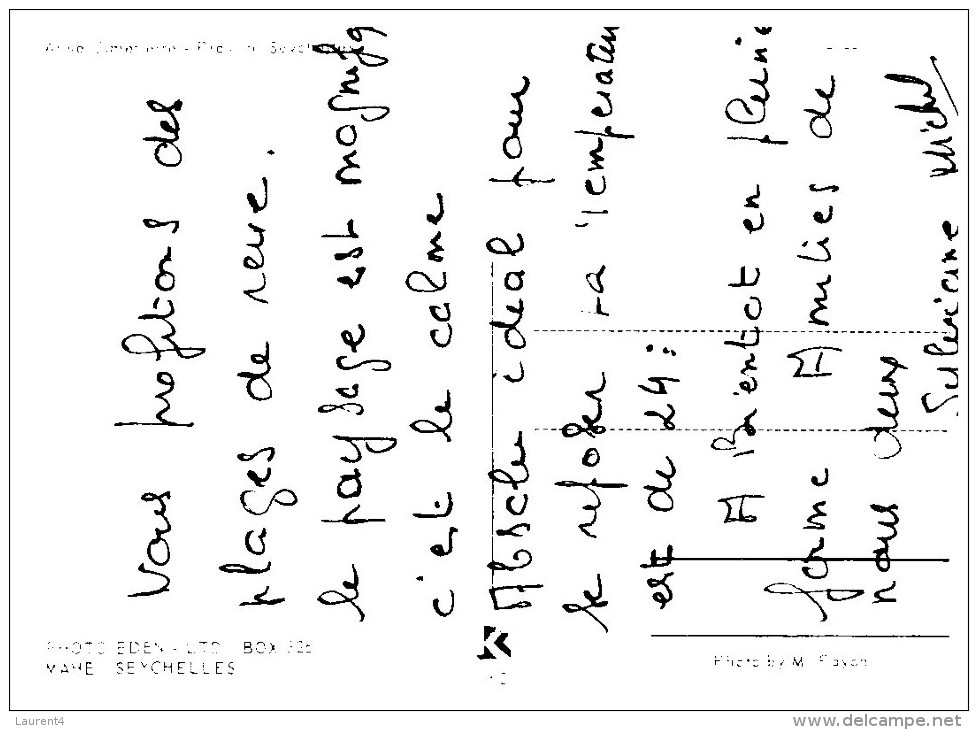 Nous profitons des
plages de reve.
le paysage est magnifg
c'est le calme
Absolu ideal pour
se reposer La temperatu
est de 24:
A Bientot en pleine
forme A Amities de
nous deux
Michel
PHOTO EDEN - LTD BOX
MAHE SEYCHELLES
Photo by M.
Laurent4
www.delcampe.net